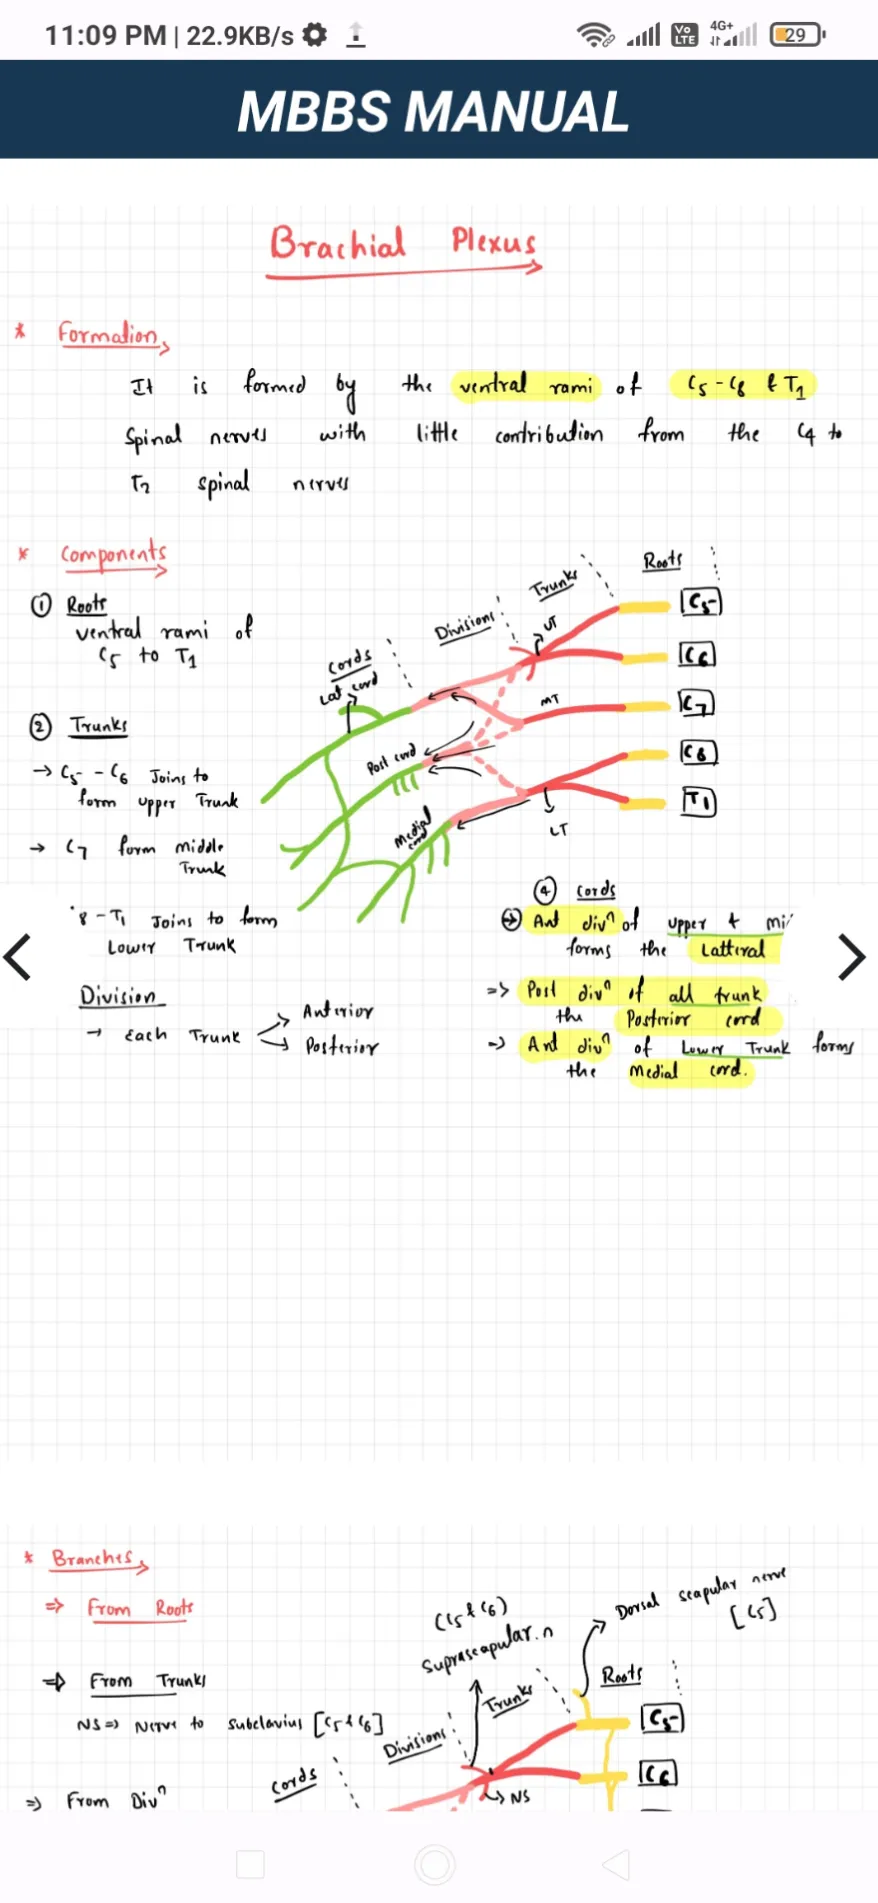 11:09 PM | 22.9KB/s
Vo LTE 4G+ 29
MBBS MANUAL
Brachial Plexus
* Formation
It is formed by the ventral rami of C5 - C8 & T1
Spinal nerves with little contribution from the C4 to
T2 spinal nerves
* Components
① Roots
ventral rami of
C5 to T1
② Trunks
→ C5 - C6 Joins to
form upper Trunk
→ C7 form middle
Trunk
8 - T1 Joins to form
Lower Trunk
Division
→ Each Trunk
Anterior
Posterior
Roots
Trunks
Divisions
Cords
Lat cord
Post cord
Medial cord
UT
MT
LT
C5
C6
C7
C8
T1
④ Cords
Ant divn of upper + mi
forms the Latteral
=> Post divn of all trunk
the Posterior cord
=> Ant divn of Lower Trunk forms
the Medial cord.
* Branches
=> From Roots
=> From Trunks
NS => Nerve to subclavius [C5 & C6]
=> From Divn
(C5 & C6)
Suprascapular.n
Dorsal scapular nerve
[C5]
Roots
Trunks
Divisions
Cords
C5
C6
NS